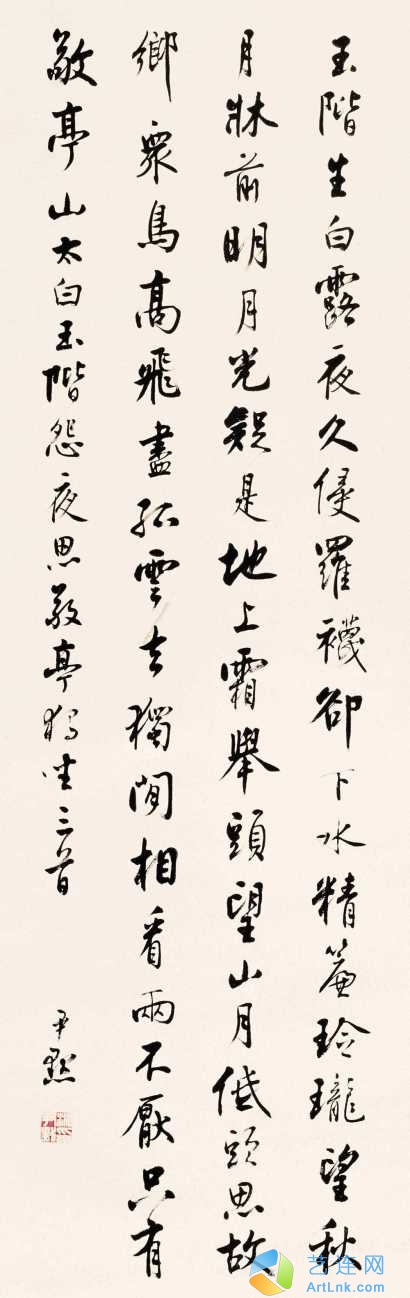 玉階生白露夜久侵羅襪卻下水精簾玲瓏望秋
月牀前明月光疑是地上霜舉頭望山月低頭思故
鄉眾鳥高飛盡孤雲去獨閒相看兩不厭只有
敬亭山太白玉階怨夜思敬亭獨坐三首
尹默
艺连网
ArtLnk.com